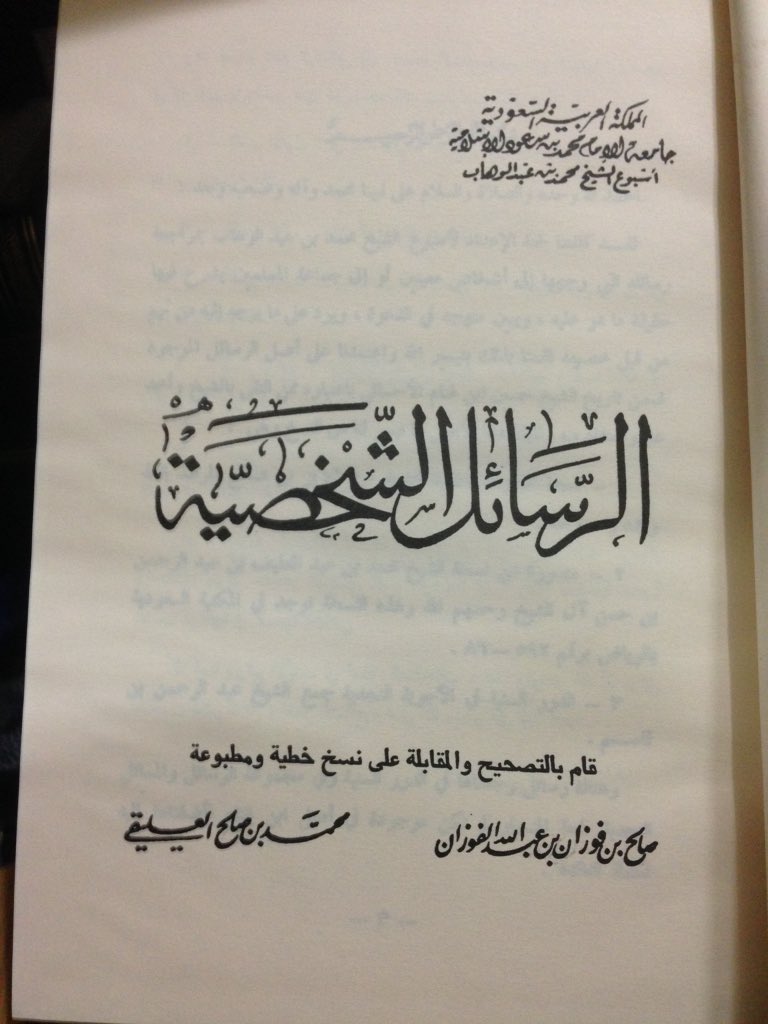 المملكة العربية السعودية
جامعة الإمام محمد بن سعود الإسلامية
أسبوع الشيخ محمد بن عبد الوهاب
الرسائل الشخصية
قام بالتصحيح والمقابلة على نسخ خطية ومطبوعة
صالح بن فوزان بن عبد الله الفوزان
محمد بن صالح العيليقي